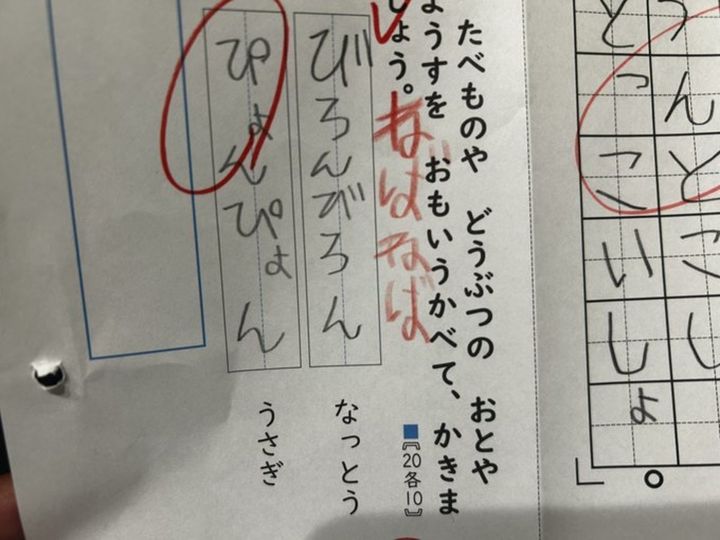 うんとこし
どっこいしょ
たべものや どうぶつの おとや
ようすを おもいうかべて、かきま
しょう。
ねばねば
【20各10】
びろんびろん
なっとう
ぴょんぴょん
うさぎ